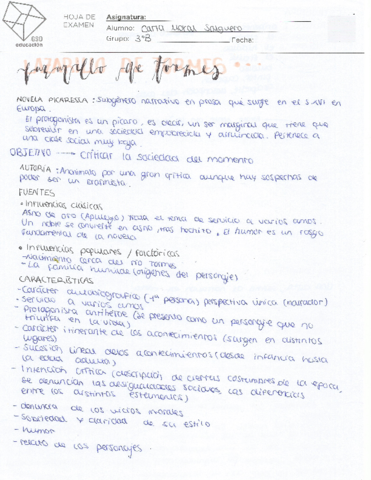 HOJA DE
EXAMEN
ESO
educación
Asignatura:
Alumno: Carla Moral Salguero
Grupo: 3ºB Fecha:
LAZARILLO DE TORMES
Lazarillo de tormes
NOVELA PICARESCA: Subgénero narrativo en prosa que surge en el S-XVI en
Europa.
El protagonista es un pícaro, es decir, un ser marginal que tiene que
sobrevivir en una sociedad empobrecida y Pertenece a
una clase social muy baja.
OBJETIVO → Criticar la sociedad del momento
AUTORIA: Anonimato por una gran crítica aunque hay sospechas de
poder ser un erasmista.
FUENTES
• Influencias clásicas
Asno de oro (Apuleyo) trata el tema de servicio a varios amos.
Un hombre se convierte en asno tras hechizo. El humor es un rasgo
fundamental de la novela
• Influencias populares / folclóricas
-Nacimiento cerca del río Tormes
- La familia humilde (orígenes del personaje)
CARACTERÍSTICAS
- Carácter autobiográfico (1ª persona) perspectiva única (narrador)
- Servicio a varios amos
- Protagonista antihéroe (se presenta como un personaje que no
triunfa en la vida)
- Carácter itinerante de los acontecimientos (surgen en distintos
lugares)
- Sucesión lineal de los acontecimientos (desde infancia hasta
la edad adulta)
- Intención crítica (descripción de ciertas costumbres de la época,
se denuncian las desigualdades sociales, las diferencias
entre los distintos estamentos)
- denuncia de los vicios morales
- Sobriedad y claridad de su estilo
- Humor
- retrato de los personajes.